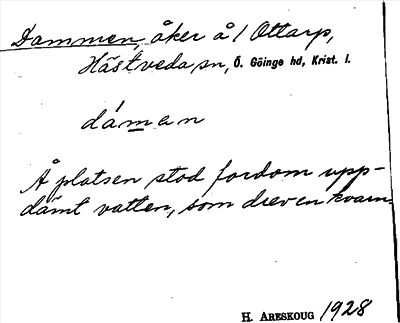 Dammen, åker å 1 Ottarp,
Hästveda sn, Ö. Göinge hd, Krist. l.
dámȧn
Å platsen stod fordom upp-
dämt vatten, som drev en kvarn.
H. ARESKOUG 1928